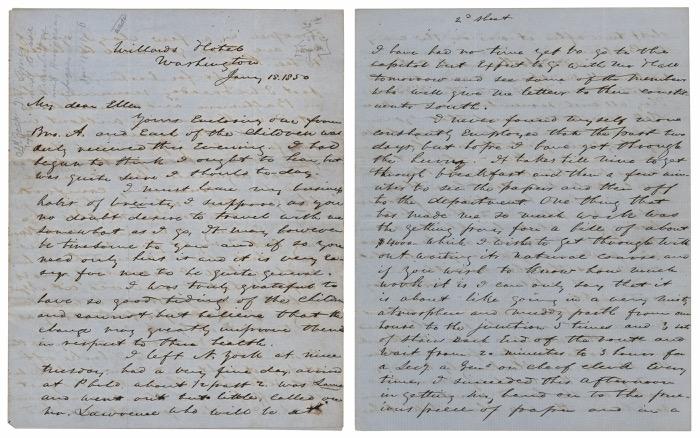 Willards Hotel
Washington
Jany 15. 1850
My dear Ellen
Yours Enclosing one from
Bro. A and Earl of the Children was
duly received this Evening. I had
began to think I ought to hear but
was quite sure I should to-day.
I must leave my business
habit of brevity I suppose, as you
no doubt desire to travel with me
somewhat as I go, It may however
be tiresome to you and if so you
need only hint it and it is very easy
for me to be quite general.
I was truly grateful to
have so good tidings of the Children
and cannot but believe that the
change may greatly improve them
in respect to their health.
I left N. York at nine
tuesday, had a very fine day, arrived
at Phila. about 1/2 past 2. was lame
and went out but little, called on
Mr. Lawrence who will to a
2d sheet
I have had no time yet to go to the
capitol but Expect to go with Mr Hall
tomorrow and see some of the members
who will give me letters to their constit
uents South.
I never found myself more
constantly Employed than the past two
days, but hope I have got through
the hurry. It takes till nine to get
through breakfast and then a few min
utes to see the papers and then off
to the department One thing that
has made me so much work was
the getting pay for a bill of about
while I wish to get through with
out waiting its natural course and
if you wish to know how much
work it is I can only say that it
is about like going in a very misty
atmosphere and muddy path from our
house to the junction 3 times and 3 sets
of stairs each End of the route and
wait from 20 minutes to 3 hours for
a Secy a Genl or chief clerk Every
time, I succeeded this afternoon
in getting my hand on to the prec
ious piece of paper and in a